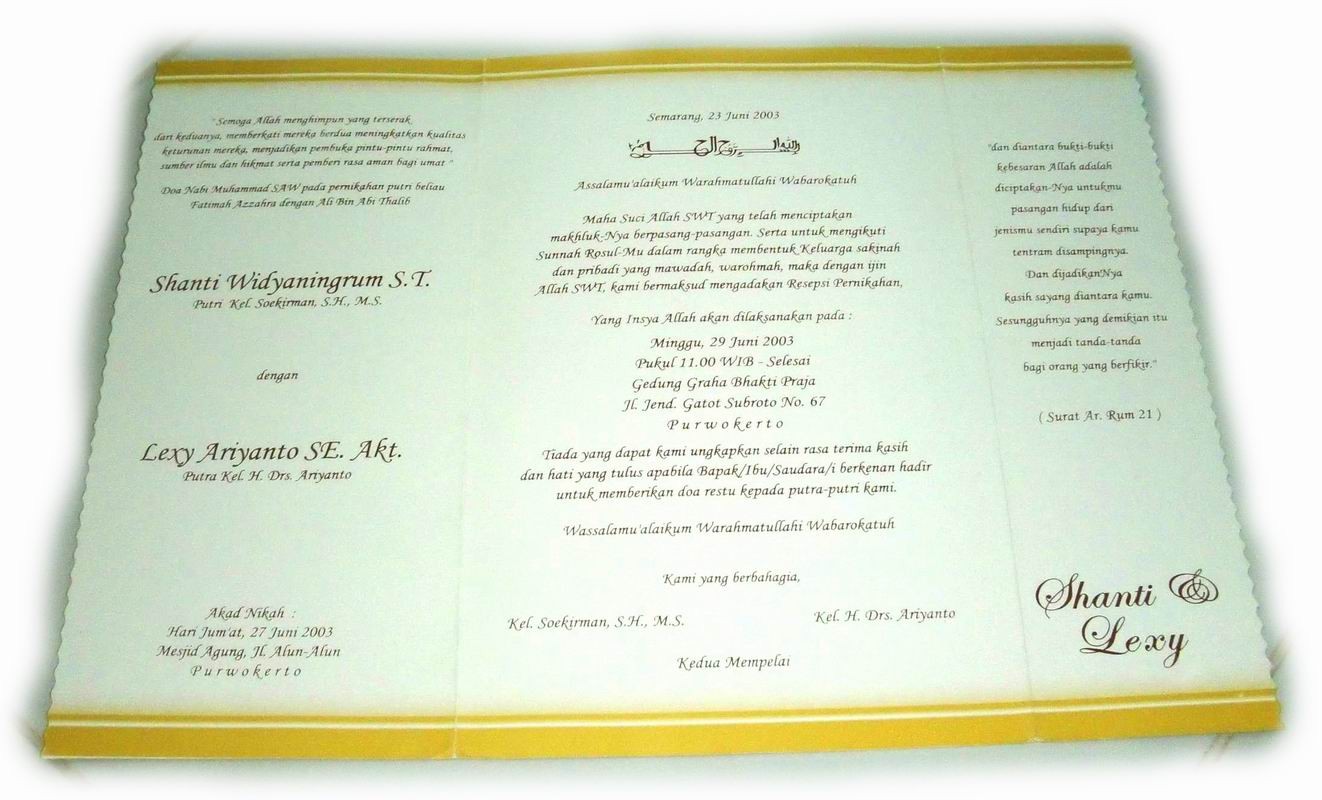 "Semoga Allah menghimpun yang terserak
dari keduanya, memberkati mereka berdua meningkatkan kualitas
keturunan mereka, menjadikan pembuka pintu-pintu rahmat,
sumber ilmu dan hikmat serta pemberi rasa aman bagi umat "
Doa Nabi Muhammad SAW pada pernikahan putri beliau
Fatimah Azzahra dengan Ali Bin Abi Thalib
Shanti Widyaningrum S.T.
Putri Kel. Soekirman, S.H., M.S.
dengan
Lexy Ariyanto SE. Akt.
Putra Kel. H. Drs. Ariyanto
Akad Nikah :
Hari Jum'at, 27 Juni 2003
Mesjid Agung, Jl. Alun-Alun
Purwokerto
Semarang, 23 Juni 2003
بسم الله الرحمن الرحيم
Assalamu'alaikum Warahmatullahi Wabarokatuh
Maha Suci Allah SWT yang telah menciptakan
makhluk-Nya berpasang-pasangan. Serta untuk mengikuti
Sunnah Rosul-Mu dalam rangka membentuk Keluarga sakinah
dan pribadi yang mawadah, warohmah, maka dengan ijin
Allah SWT, kami bermaksud mengadakan Resepsi Pernikahan,
Yang Insya Allah akan dilaksanakan pada :
Minggu, 29 Juni 2003
Pukul 11.00 WIB - Selesai
Gedung Graha Bhakti Praja
Jl. Jend. Gatot Subroto No. 67
Purwokerto
Tiada yang dapat kami ungkapkan selain rasa terima kasih
dan hati yang tulus apabila Bapak/Ibu/Saudara/i berkenan hadir
untuk memberikan doa restu kepada putra-putri kami.
Wassalamu'alaikum Warahmatullahi Wabarokatuh
Kami yang berbahagia,
Kel. Soekirman, S.H., M.S.
Kel. H. Drs. Ariyanto
Kedua Mempelai
"dan diantara bukti-bukti
kebesaran Allah adalah
diciptakan-Nya untukmu
pasangan hidup dari
jenismu sendiri supaya kamu
tentram disampingnya.
Dan dijadikanNya
kasih sayang diantara kamu.
Sesungguhnya yang demikian itu
menjadi tanda-tanda
bagi orang yang berfikir."
( Surat Ar. Rum 21 )
Shanti &
Lexy